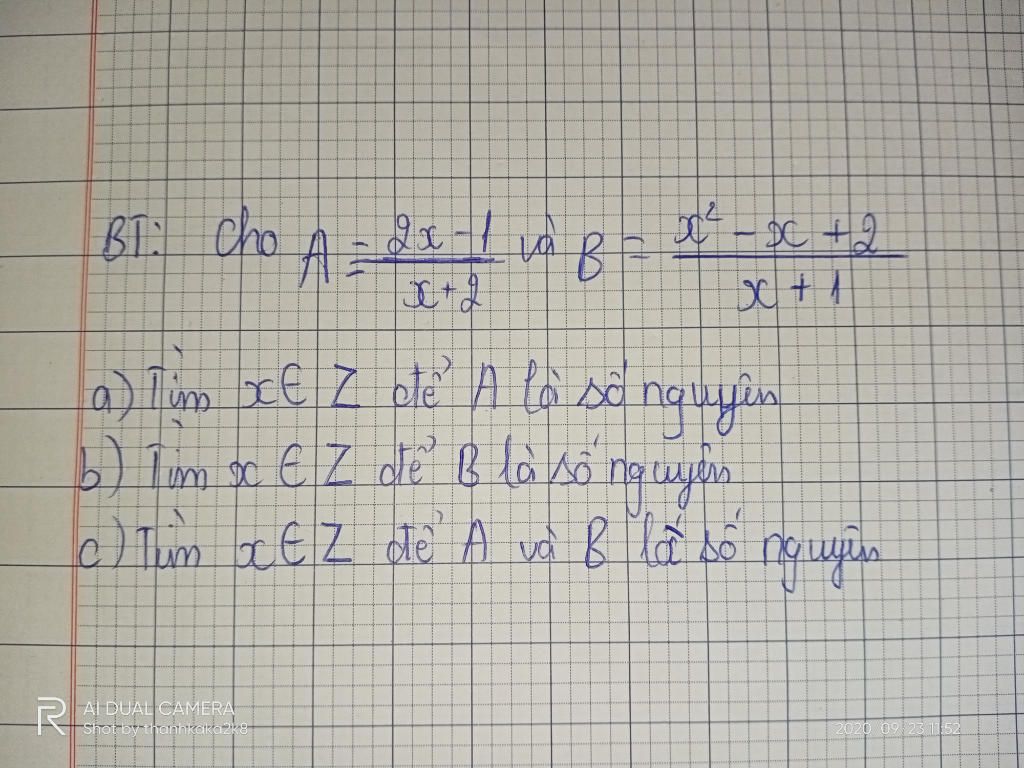 BT: Cho A = \frac{2x - 1}{x + 2} và B = \frac{x² - x + 2}{x + 1}
a) Tìm x ∈ Z để A là số nguyên
b) Tìm x ∈ Z để B là số nguyên
c) Tìm x ∈ Z để A và B là số nguyên
AI DUAL CAMERA
Shot by thanhkaka2k8
2020 09 23 11:52